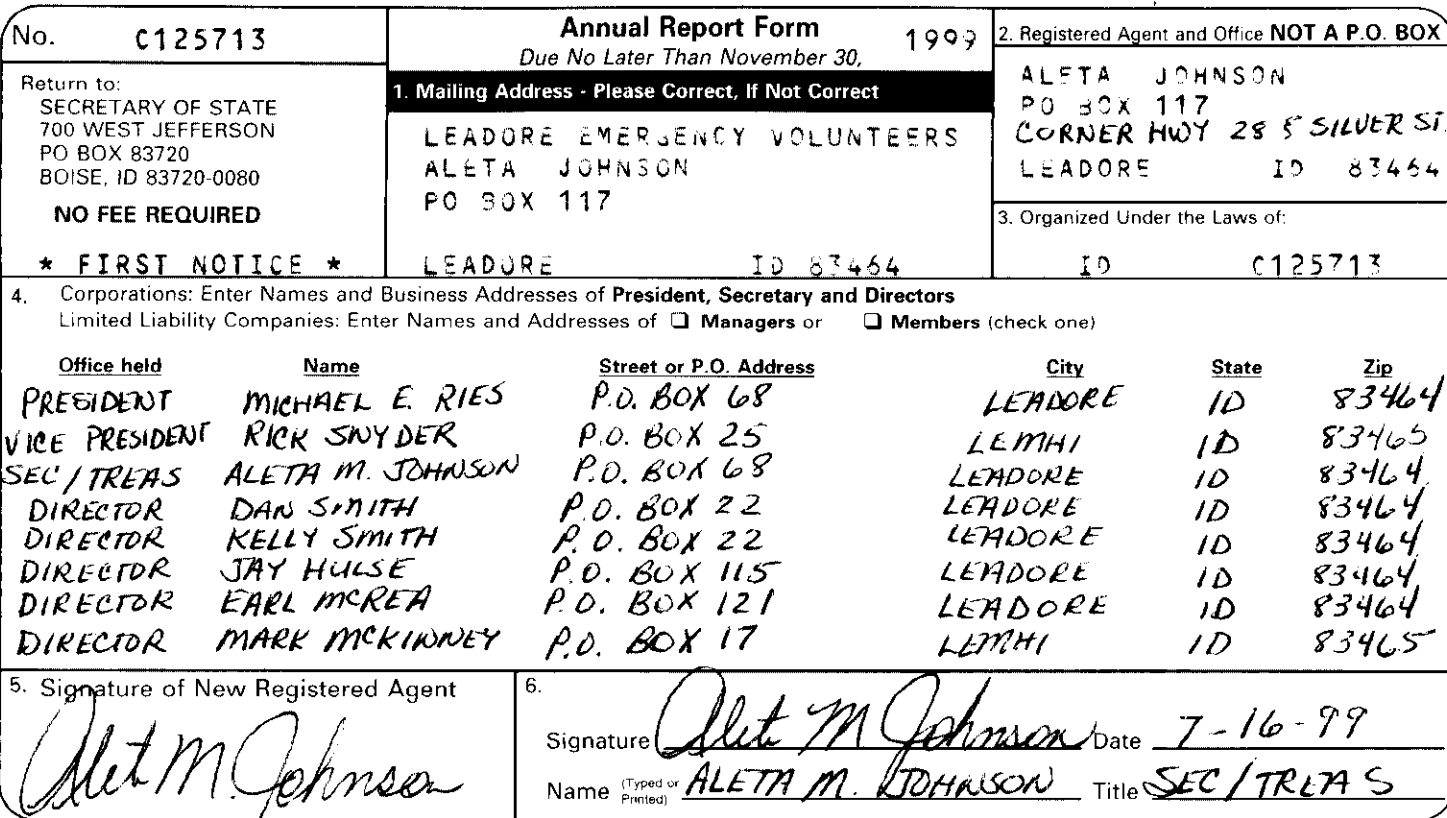 No. C125713
Annual Report Form 1999
Due No Later Than November 30,
Return to:
SECRETARY OF STATE
700 WEST JEFFERSON
PO BOX 83720
BOISE, ID 83720-0080
NO FEE REQUIRED
* FIRST NOTICE *
1. Mailing Address - Please Correct, If Not Correct
LEADORE EMERGENCY VOLUNTEERS
ALETA JOHNSON
PO BOX 117
LEADORE ID 83464
2. Registered Agent and Office NOT A P.O. BOX
ALETA JOHNSON
PO BOX 117
CORNER HWY 28 & SILVER ST.
LEADORE ID 83464
3. Organized Under the Laws of:
ID C125713
4. Corporations: Enter Names and Business Addresses of President, Secretary and Directors
Limited Liability Companies: Enter Names and Addresses of ❑ Managers or ❑ Members (check one)
Office held Name Street or P.O. Address City State Zip
PRESIDENT MICHAEL E. RIES P.O. BOX 68 LEADORE ID 83464
VICE PRESIDENT RICK SNYDER P.O. BOX 25 LEMHI ID 83465
SEC/TREAS ALETA M. JOHNSON P.O. BOX 68 LEADORE ID 83464
DIRECTOR DAN SMITH P.O. BOX 22 LEADORE ID 83464
DIRECTOR KELLY SMITH P.O. BOX 22 LEADORE ID 83464
DIRECTOR JAY HULSE P.O. BOX 115 LEADORE ID 83464
DIRECTOR EARL MCREA P.O. BOX 121 LEADORE ID 83464
DIRECTOR MARK MCKINNEY P.O. BOX 17 LEMHI ID 83465
5. Signature of New Registered Agent
Aleta M. Johnson
6.
Signature Aleta M Johnson Date 7-16-99
Name (Typed or Printed) ALETA M. JOHNSON Title SEC/TREAS